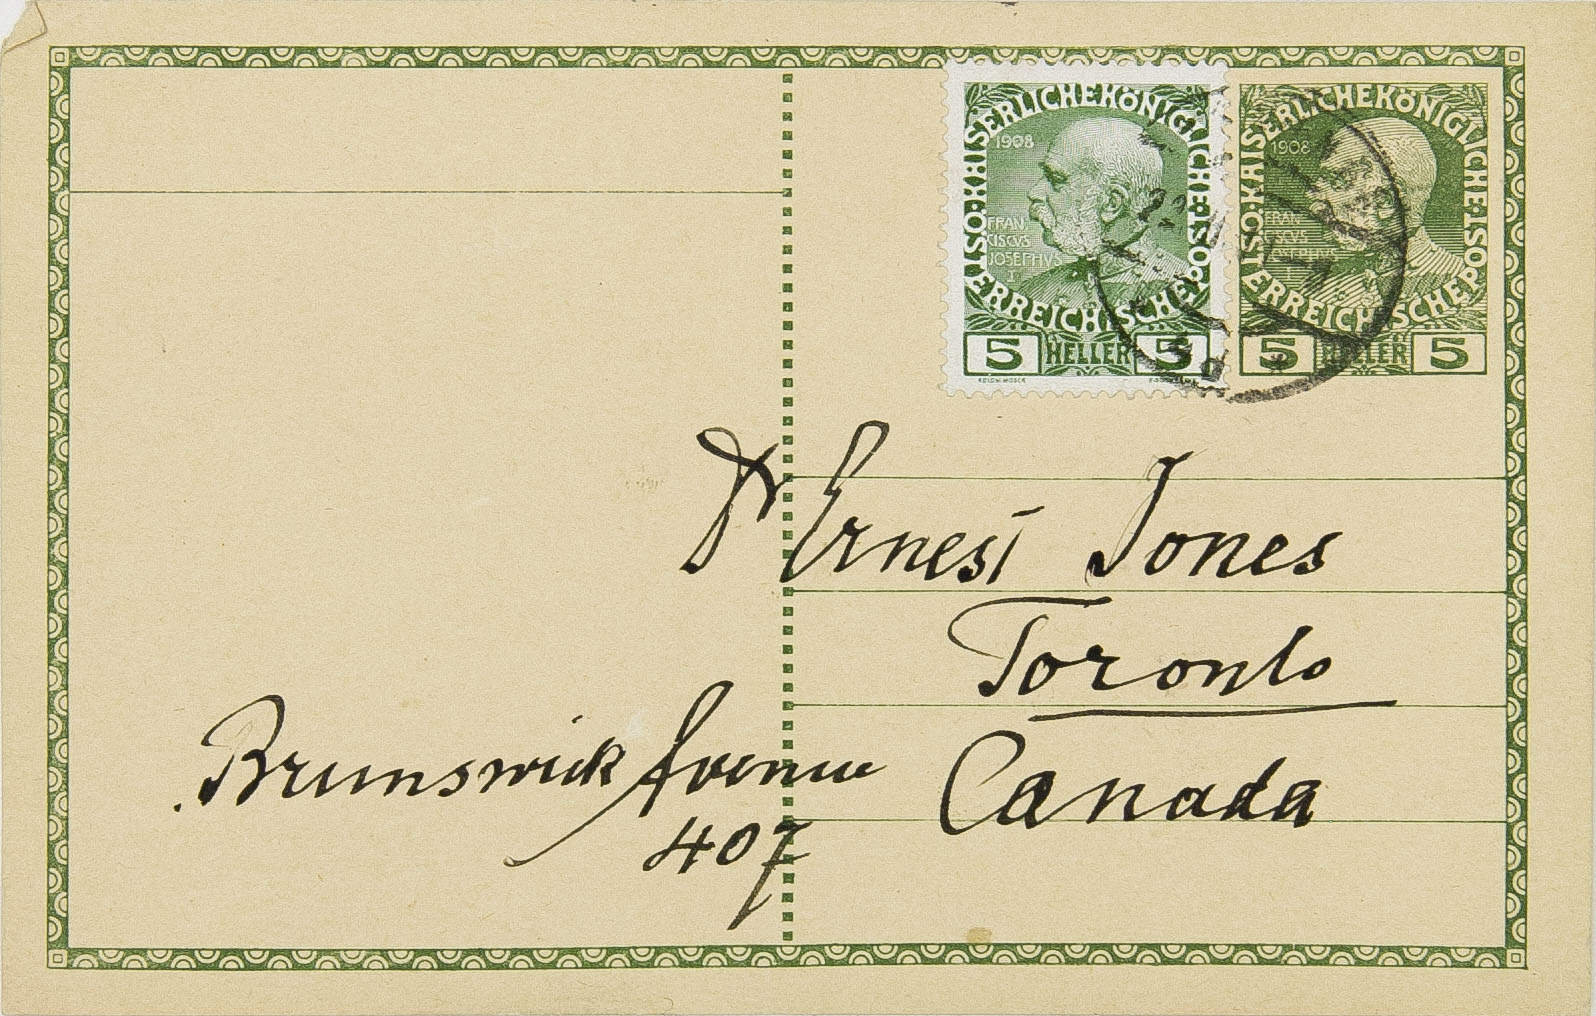 KAISERLICHE KÖNIGLICHE ÖSTERREICHISCHE POST
1908
FRAN
CISCVS
JOSEPHVS
I
5 HELLER 5
KAISERLICHE KÖNIGLICHE ÖSTERREICHISCHE POST
1908
FRAN
CISCVS
JOSEPHVS
I
5 HELLER 5
KOLOM. MOSER
Dr Ernest Jones
Toronto
Brunswick Avenue
407
Canada